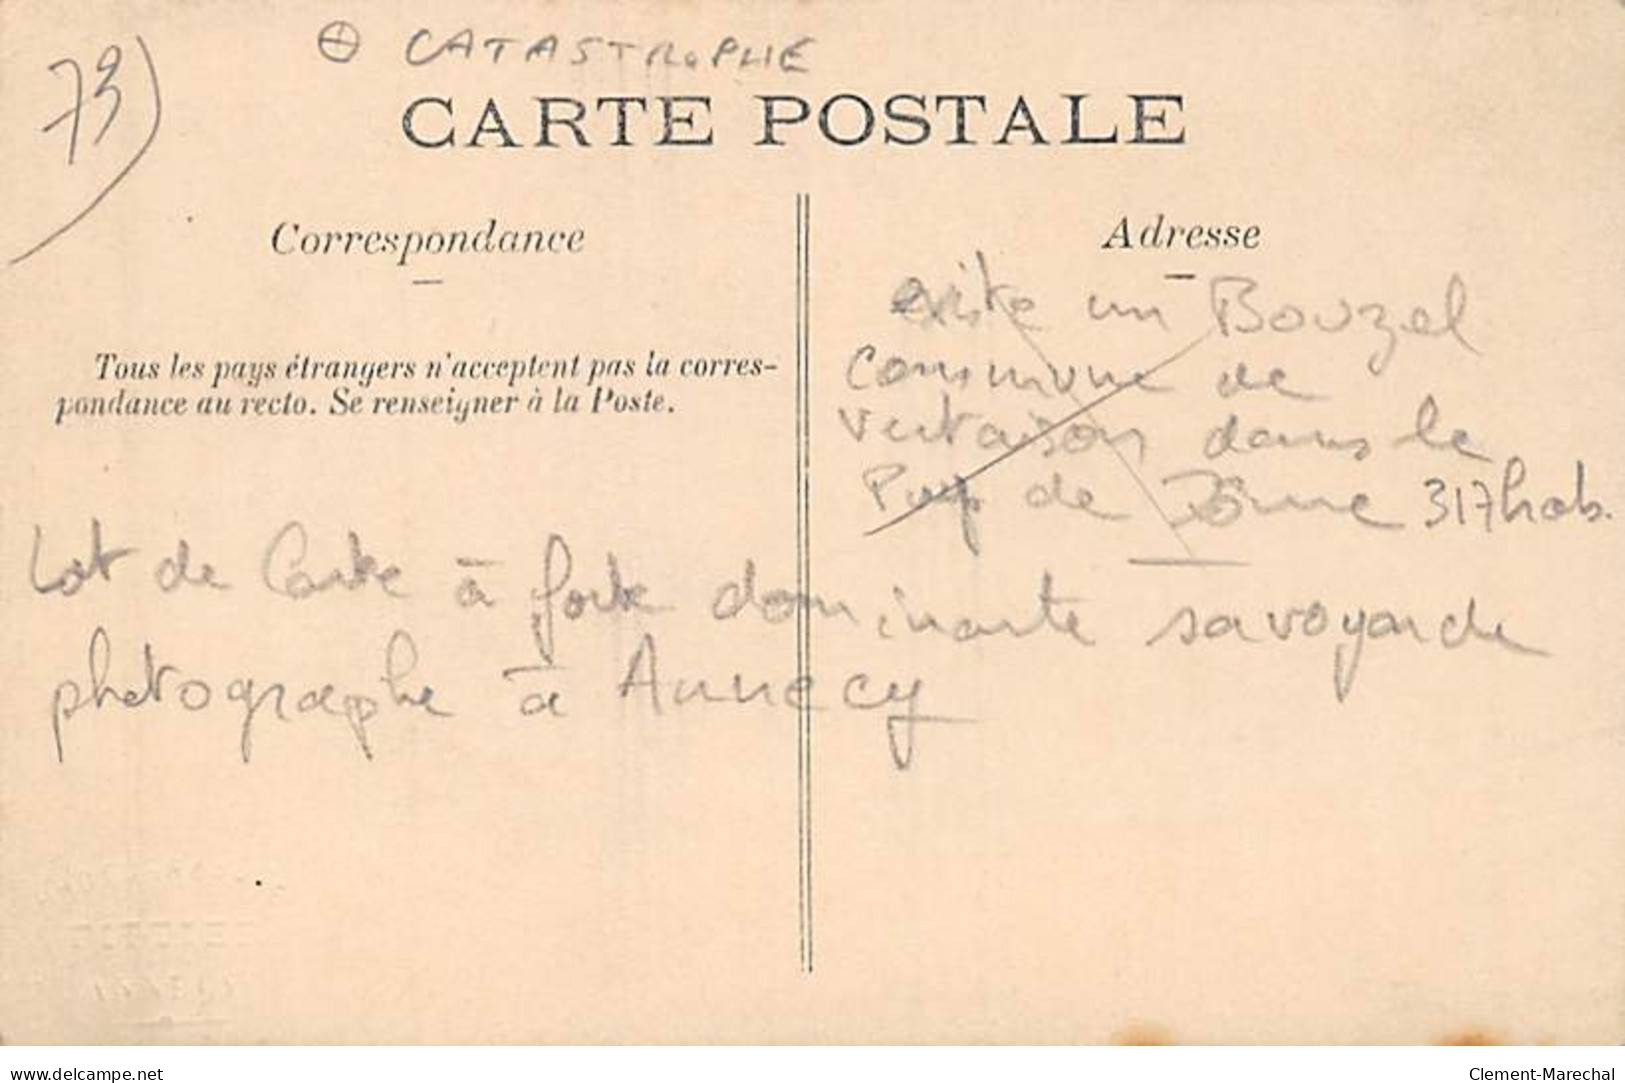 73)
⊕ CATASTROPHE
CARTE POSTALE
Correspondance
Tous les pays étrangers n'acceptent pas la corres-
pondance au recto. Se renseigner à la Poste.
Adresse
existe un Bouzel
commune de
Vertaison dans le
Puy de Dôme 317 hab.
Lot de Carte à forte dominante savoyarde
photographe à Annecy
www.delcampe.net
Clement-Marechal